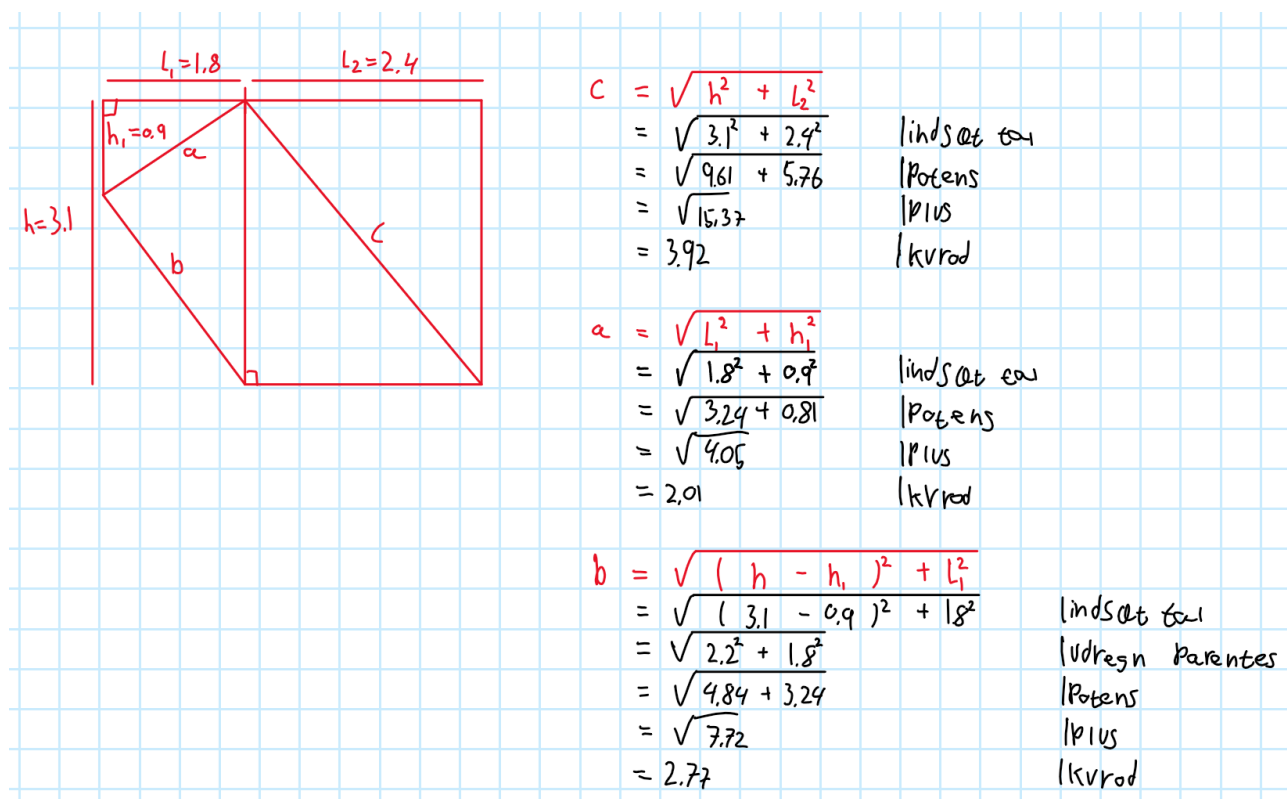 L₁=1.8 L₂=2.4
h₁=0.9
a
h=3.1
c
b
c = √(h² + L₂²)
= √(3.1² + 2.4²) |indsæt tal
= √(9.61 + 5.76) |Potens
= √15.37 |plus
= 3.92 |kvrod
a = √(L₁² + h₁²)
= √(1.8² + 0.9²) |indsæt tal
= √(3.24 + 0.81) |Potens
= √4.05 |plus
= 2.01 |kvrod
b = √((h - h₁)² + L₁²)
= √((3.1 - 0.9)² + 18²) |indsæt tal
= √(2.2² + 1.8²) |udregn parentes
= √(4.84 + 3.24) |Potens
= √7.72 |plus
= 2.77 |kvrod